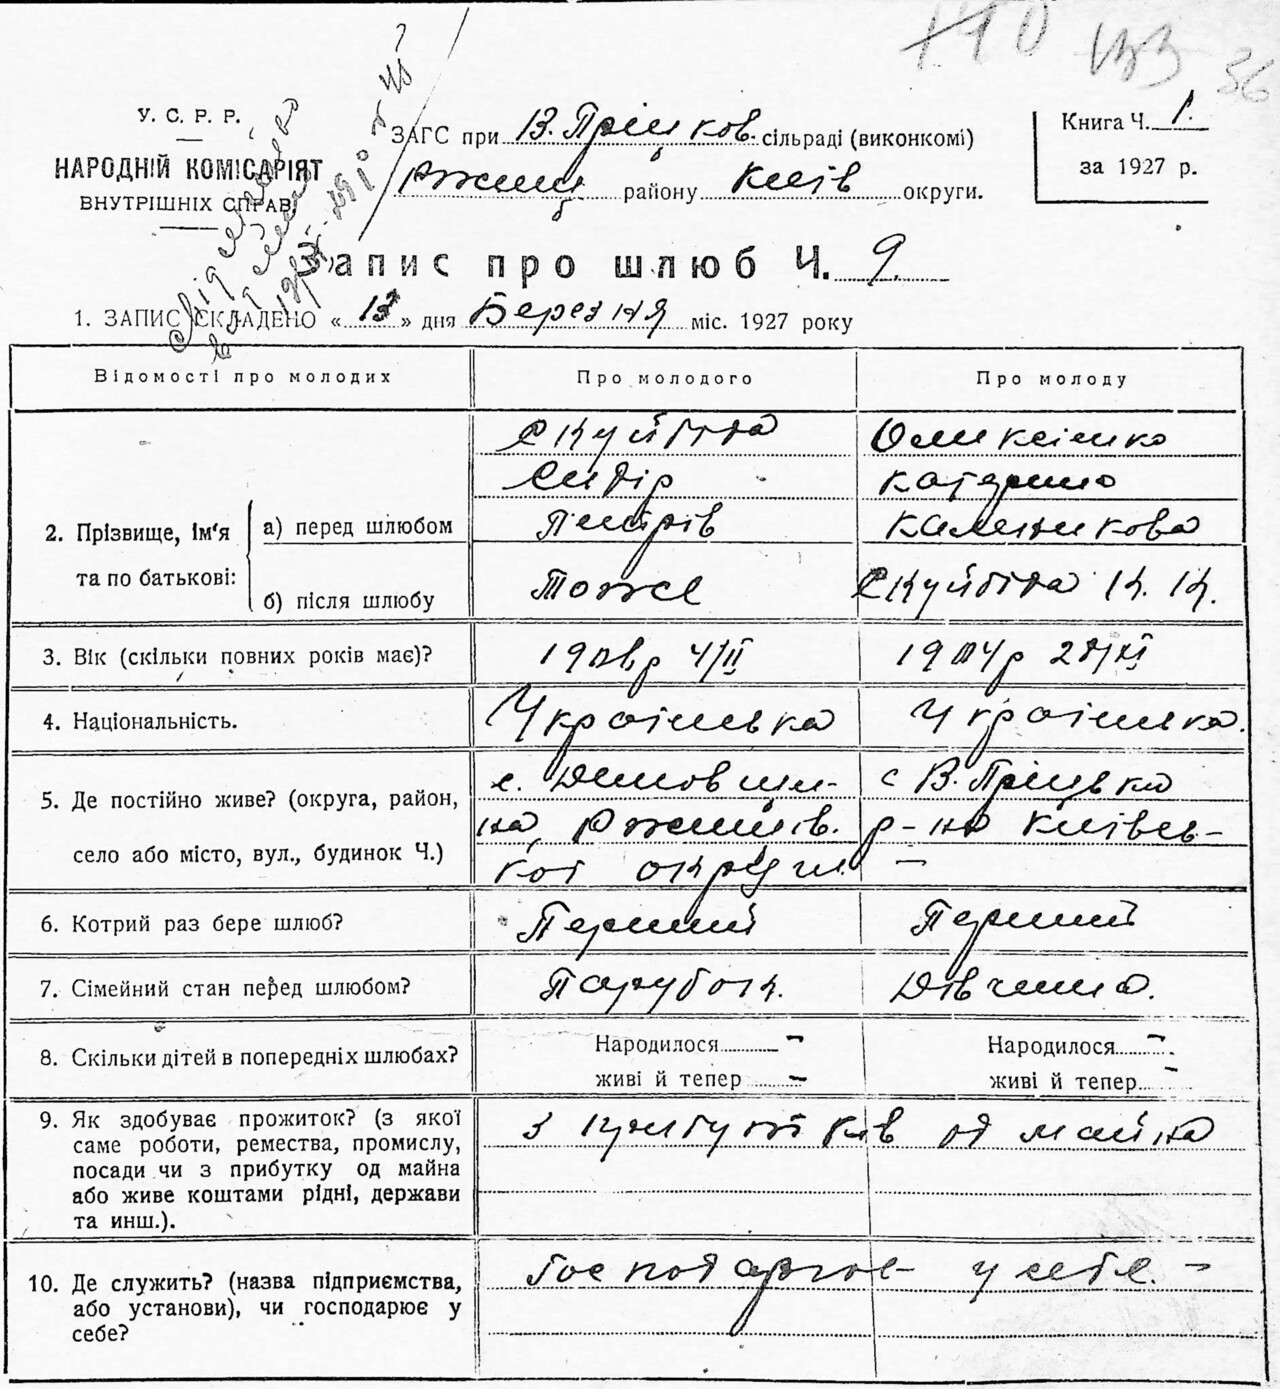 У. С. Р. Р.
НАРОДНІЙ КОМІСАРІЯТ
ВНУТРІШНІХ СПРАВ
ЗАГС при В. Пріцков. сільраді (виконкомі)
Ржищ району Київ округи.
Книга Ч. 1.
за 1927 р.
133
36
Запис про шлюб Ч. 9.
1. ЗАПИС СКЛАДЕНО « 13 » дня Березня міс. 1927 року
Відомості про молодих Про молодого Про молоду
2. Прізвище, ім'я та по батькові:
а) перед шлюбом
Скуйбіда
Сидір
Петрів
Омиксієнко
Катерина
Каленикова
б) після шлюбу
Тоже
Скуйбіда К. К.
3. Вік (скільки повних років має)?
4/ІІ
1904 р
4. Національність. Українська Українка.
5. Де постійно живе? (округа, район,
село або місто, вул., будинок Ч.)
с. Демовщи-
на, Ржищів.
кої округи.
с В. Пріцька
р-на Київсь-
–
6. Котрий раз бере шлюб? Перший Перший
7. Сімейний стан перед шлюбом? Парубок. Дівчина.
8. Скільки дітей в попередніх шлюбах?
Народилося –
живі й тепер –
Народилося –
живі й тепер –
9. Як здобуває прожиток? (з якої
саме роботи, ремества, промислу,
посади чи з прибутку од майна
або живе коштами рідні, держави
та инш.).
з прибутків од майна
10. Де служить? (назва підприємства,
або установи), чи господарює у
себе?
Господарює у себе. –